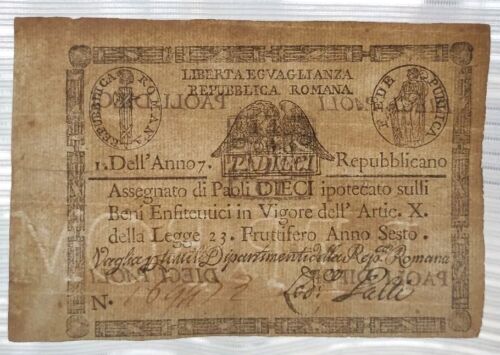 LIBERTA EGVAGLIANZA
REPVBBLICA ROMANA.
PAOLI DIECI
REPVBBLICA ROMANA
FEDE PUBLICA
P. DIECI
1. Dell'Anno 7. Repubblicano
Assegnato di Paoli DIECI ipotecato sulli
Beni Enfiteutici in Vigore dell' Artic. X.
della Legge 23. Fruttifero Anno Sesto.
Vaglia Dipartimenti della Rep. Romana
DIECI PAOLI
PAOLI DIECI
N.